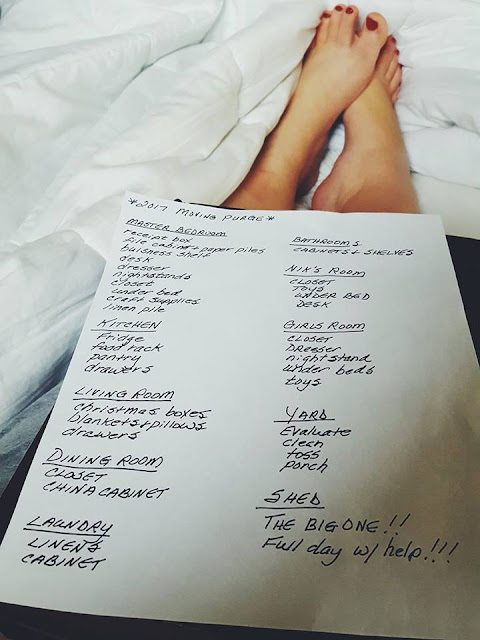 *2017 MOVING PURGE*
MASTER BEDROOM
receipt box
file cabinet + paper piles
business shelf
desk
dresser
nightstands
closet
under bed
craft supplies
linen pile
KITCHEN
Fridge
food rack
pantry
drawers
LIVING ROOM
christmas boxes
blankets + pillows
drawers
DINING ROOM
CLOSET
CHINA CABINET
LAUNDRY
LINENS
CABINET
BATHROOMS
CABINETS + SHELVES
NIK'S ROOM
CLOSET
TOYS
UNDER BED
DESK
GIRLS ROOM
CLOSET
DRESSER
nightstand
under beds
toys
YARD
Evaluate
clean
toss
porch
SHED
THE BIG ONE!!
Full day w/ help!!!